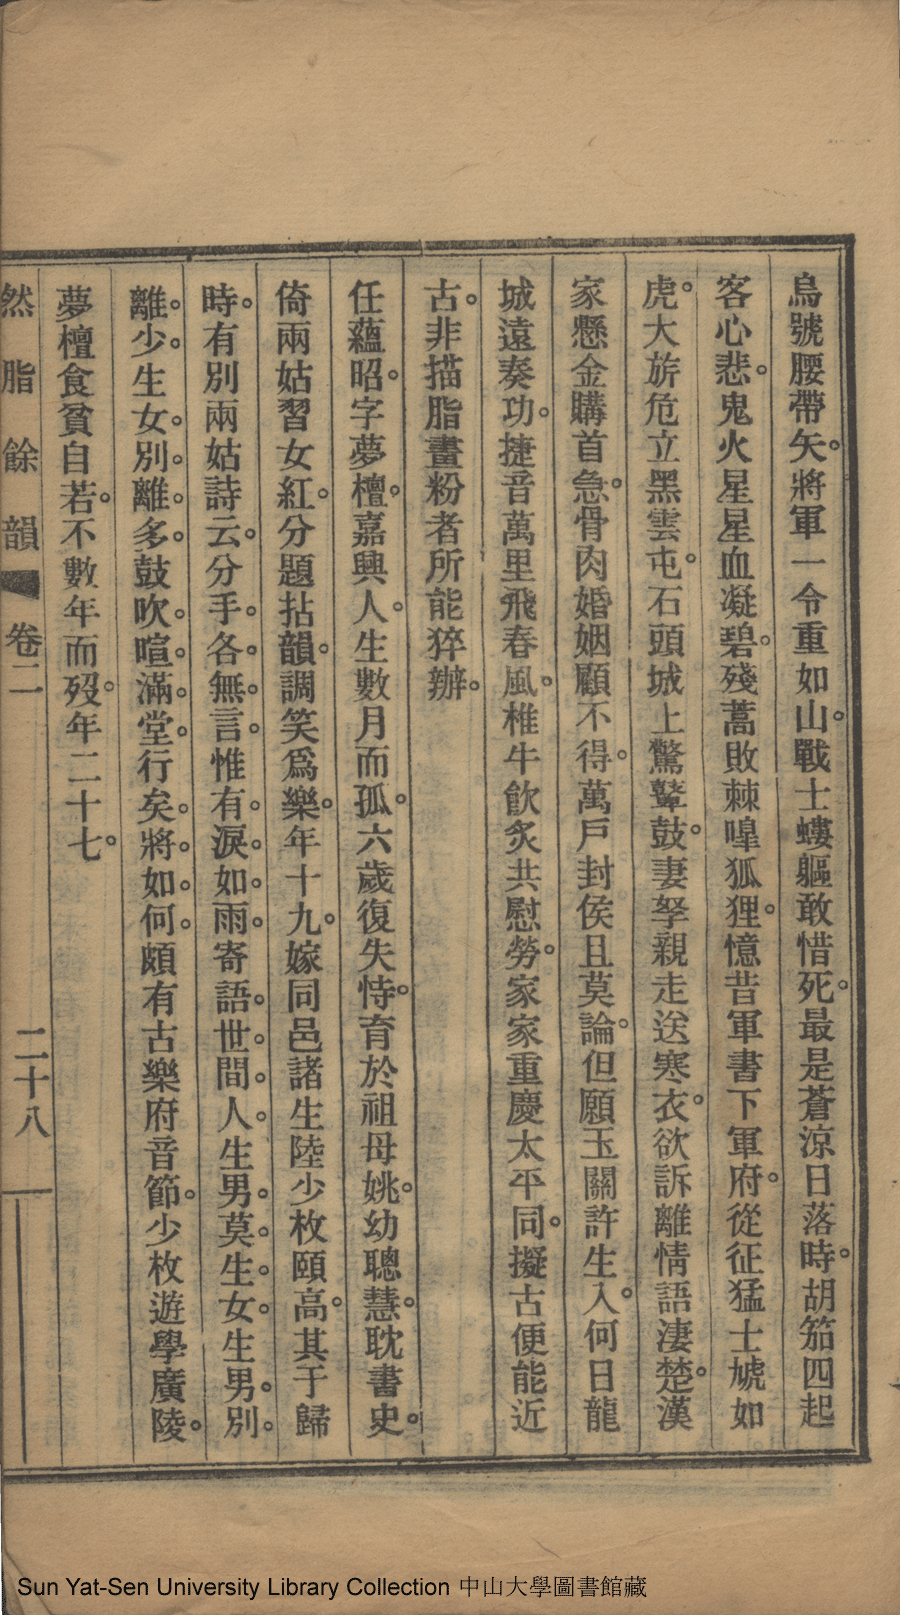 烏號腰帶矢。將軍一令重如山。戰士螻軀敢惜死。最是蒼涼日落時。胡笳四起
客心悲。鬼火星星血凝碧。殘蒿敗棘嘷狐狸。憶昔軍書下軍府。從征猛士虓如
虎。大旂危立黑雲屯。石頭城上驚鼙鼓。妻孥親走送寒衣。欲訴離情語淒楚。漢
家懸金購首急。骨肉婚姻顧不得。萬戶封侯且莫論。但願玉關許生入。何日龍
城遠奏功。捷音萬里飛春風。椎牛飲炙共慰勞。家家重慶太平同。擬古便能近
古。非描脂畫粉者所能猝辦。
任蘊昭。字夢檀。嘉興人。生數月而孤。六歲復失恃。育於祖母姚。幼聰慧。耽書史。
倚兩姑習女紅。分題拈韻。調笑爲樂。年十九。嫁同邑諸生陸少枚頤高。其于歸
時。有別兩姑詩云。分手各無言。惟有淚如雨。寄語世間人。生男莫生女。生男別
離少。生女別離多。鼓吹喧滿堂。行矣將如何。頗有古樂府音節。少枚遊學廣陵。
夢檀食貧自若。不數年而歿。年二十七。
然脂餘韻 卷二 二十八
Sun Yat-Sen University Library Collection 中山大學圖書館藏